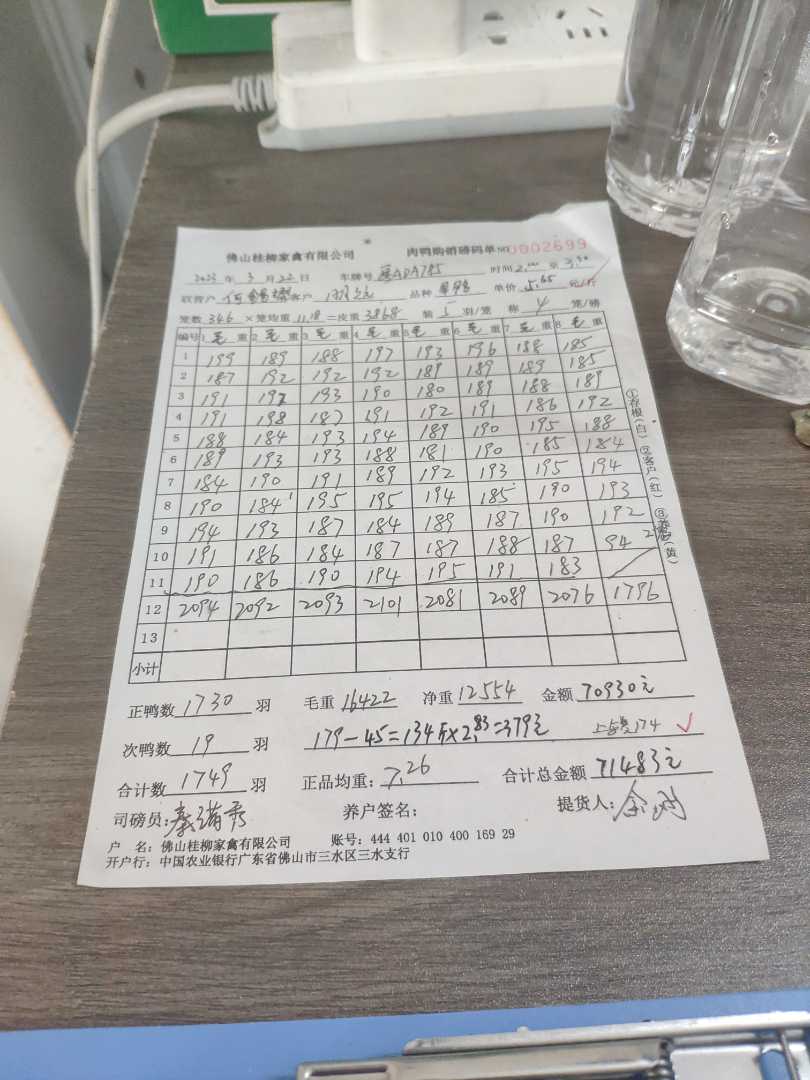 佛山桂柳家禽有限公司 肉鸭购销磅码单 NO 0002699
2023 年 3 月 22 日 车牌号 ADA785 时间 2.00 至 3.30
联营户 客户 品种 单价 5.65 元/斤
笼数 346 ×笼均重 11.18 =皮重 3868 装 5 羽/笼 称 4 笼/磅
编号 1 毛 重 2 毛 重 3 毛 重 4 毛 重 5 毛 重 6 毛 重 7 毛 重 8 毛 重
1 199 189 188 197 193 196 188 185
2 187 192 192 192 189 189 189 185
3 191 192 193 190 180 189 188 189
4 191 198 187 191 192 191 186 192
5 188 184 193 194 189 190 195 188
6 189 193 193 188 181 190 185 184
7 184 190 191 189 192 193 195 194
8 190 184 195 195 194 185 190 193
9 194 193 187 184 189 187 190 192
10 191 186 184 187 187 188 187 94 2笼
11 190 186 190 194 195 191 183
12 2094 2092 2093 2101 2081 2089 2076 1796
13
小计
①存根(白) ②客户(红) ③养户(黄)
正鸭数 1730 羽 毛重 16422 净重 12554 金额 70930元
次鸭数 19 羽 179-45=134斤×2.83=379元 174
合计数 1749 羽 正品均重: 7.26 合计总金额 71483元
司磅员: 秦满秀 养户签名: 提货人:
户 名: 佛山桂柳家禽有限公司 账号: 444 401 010 400 169 29
开户行: 中国农业银行广东省佛山市三水区三水支行